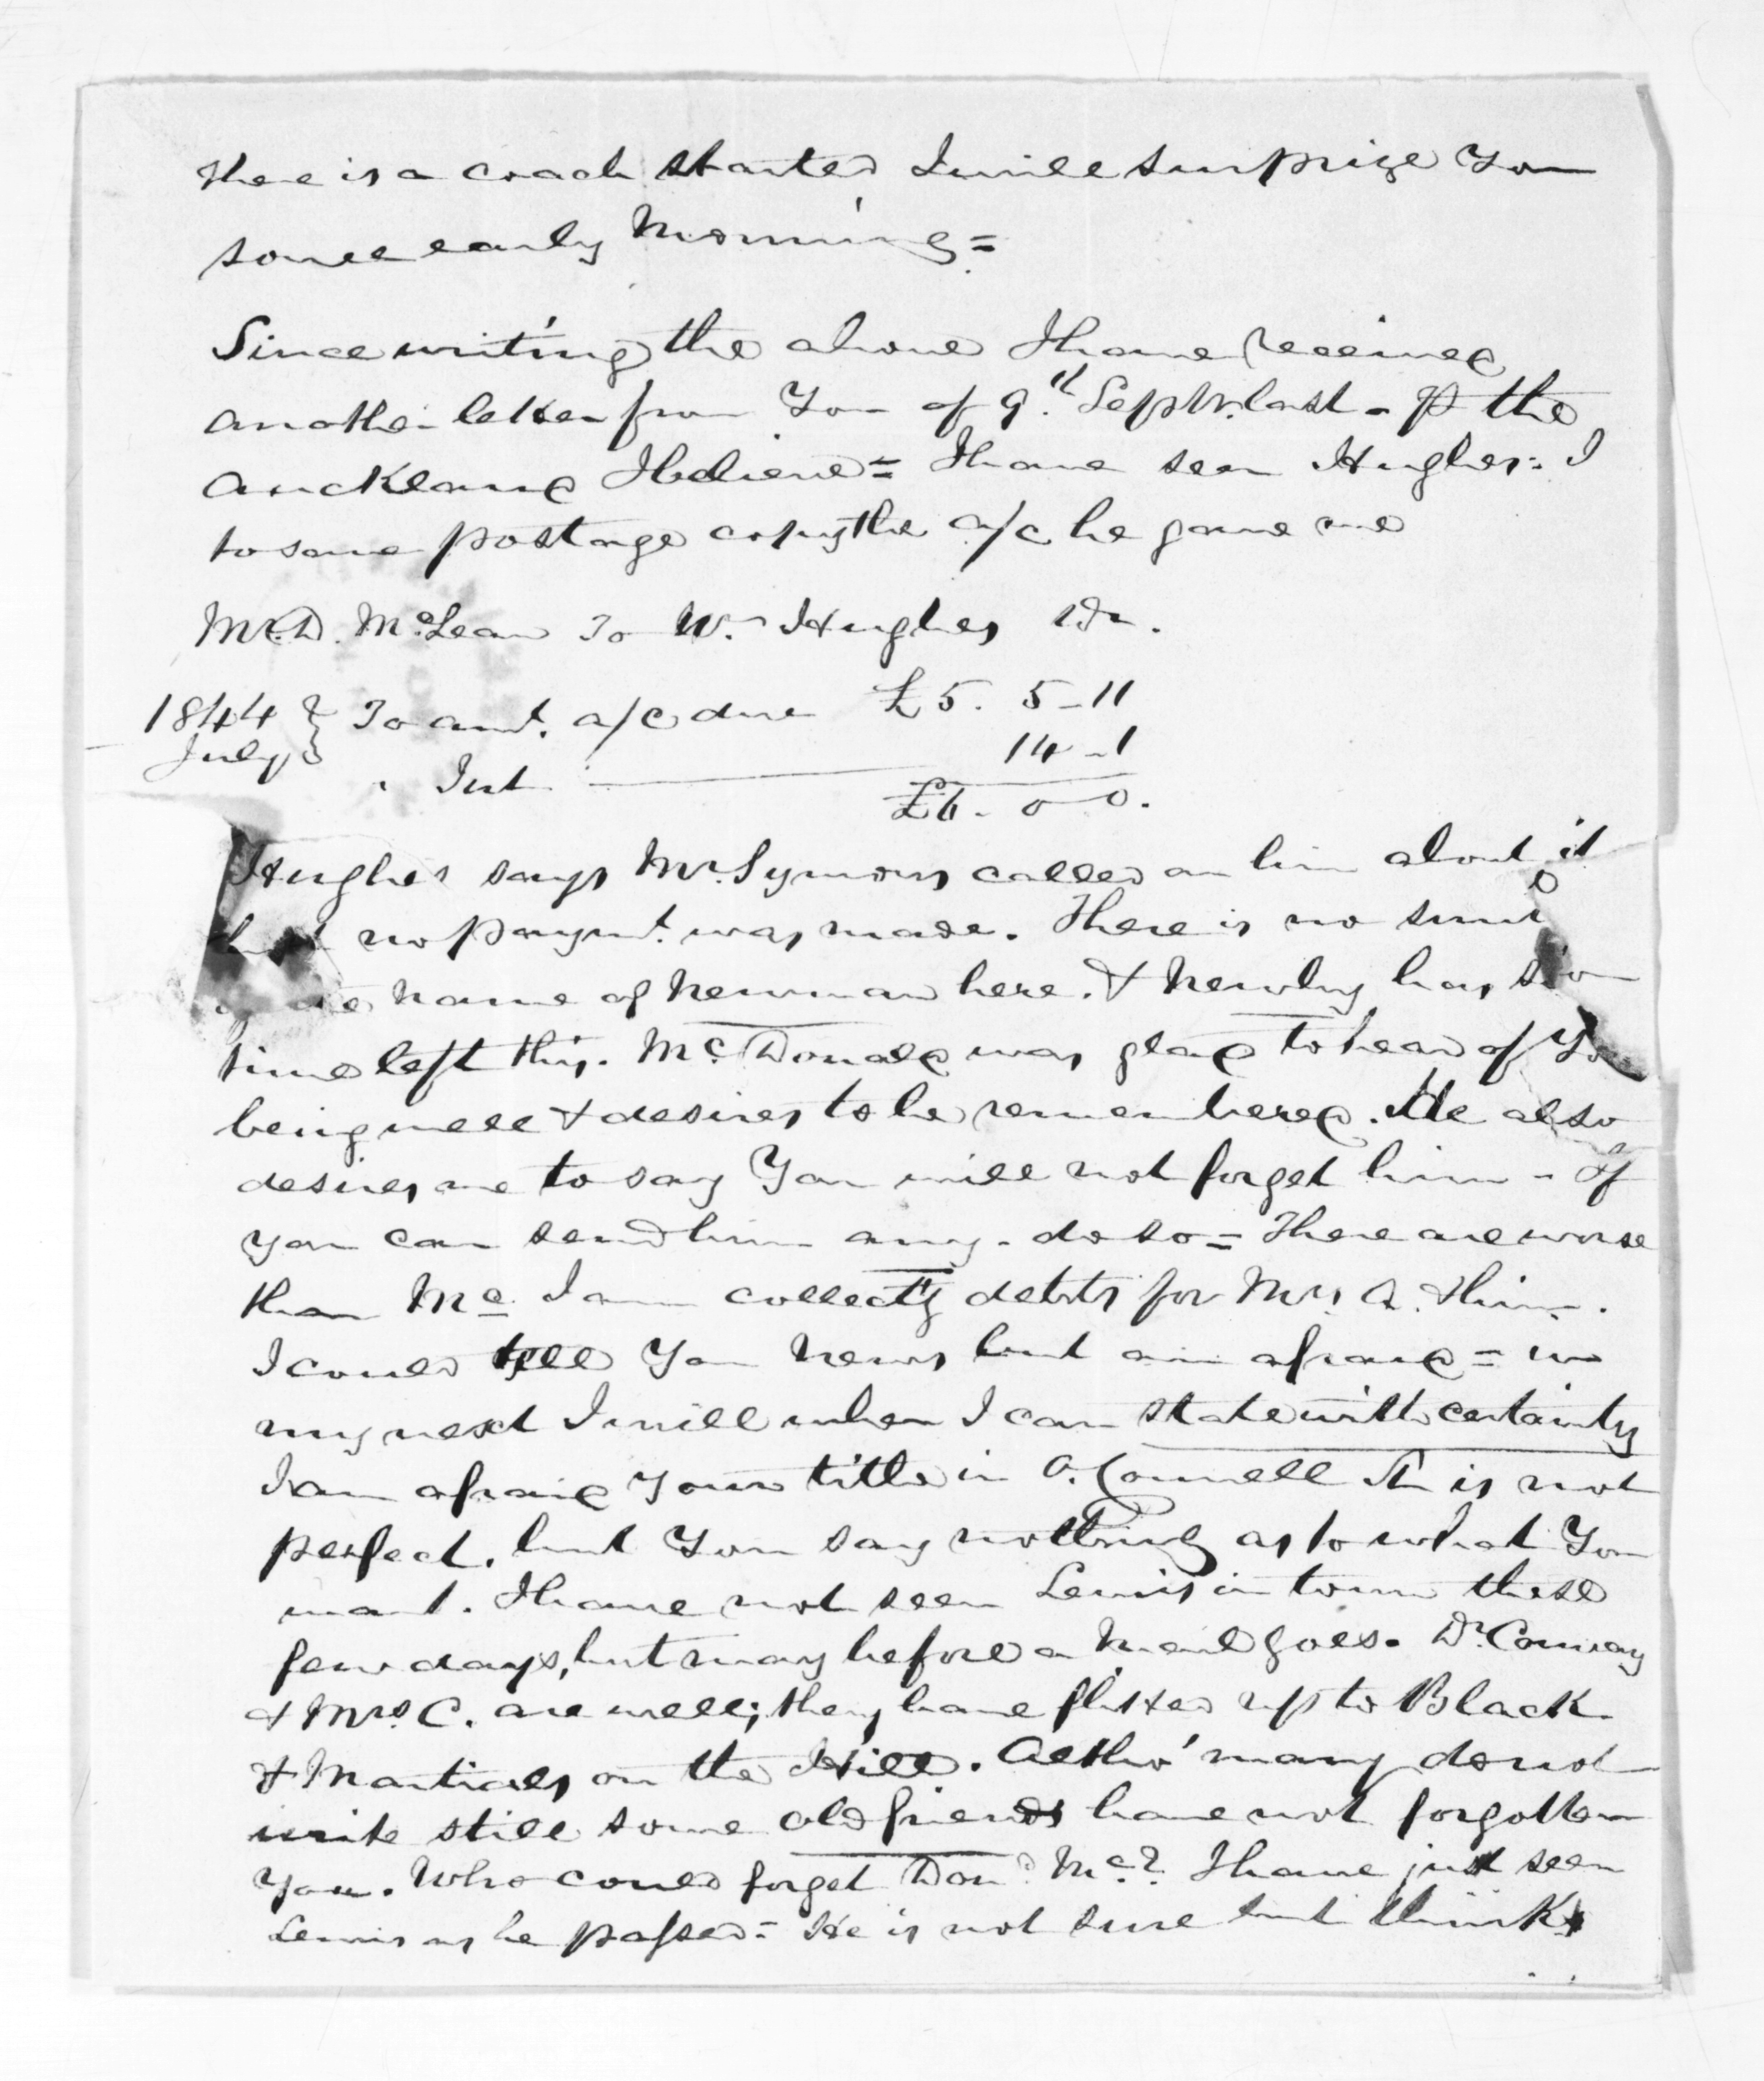 there is a coach started I will surprize You
some early Morning =
Since writing the above I have received
another letter from You of 9th Septr. last - P the
Auckland I believe = I have seen Hughes = I
to save postage copy the a/c he gave me
Mr. D. McLean To Wm Hughes Dr.
1844 } To amt. a/c due £5. 5-11
July } " Int 14-1
£6. 0 0.
Hughes says Mr. Symons called on him about it
but no paymt. was made. There is no
of the name of Newman here. & Newby has
time left this. McDonald was glad to hear of You
being well & desires to be remembered. He also
desires me to say You will not forget him - If
you can send him any - do so = There are worse
than Mc I am collectg debts for Mrs. A. & him.
I could tell You News but am afraid = in
my next I will when I can state with certainty
I am afraid Your title in O.Connell St is not
perfect, but You say nothing as to what You
want. I have not seen Lewis in town these
few days, but may before a Mail goes. Dr. Conway
& Mrs. C. are well; they have flitted up to Black
& on the Hill. Altho' many do not
write still some old friends have not forgotten
You. Who could forget Dond. Mc.? I have just seen
Lewis as he passed = He is not sure but thinks